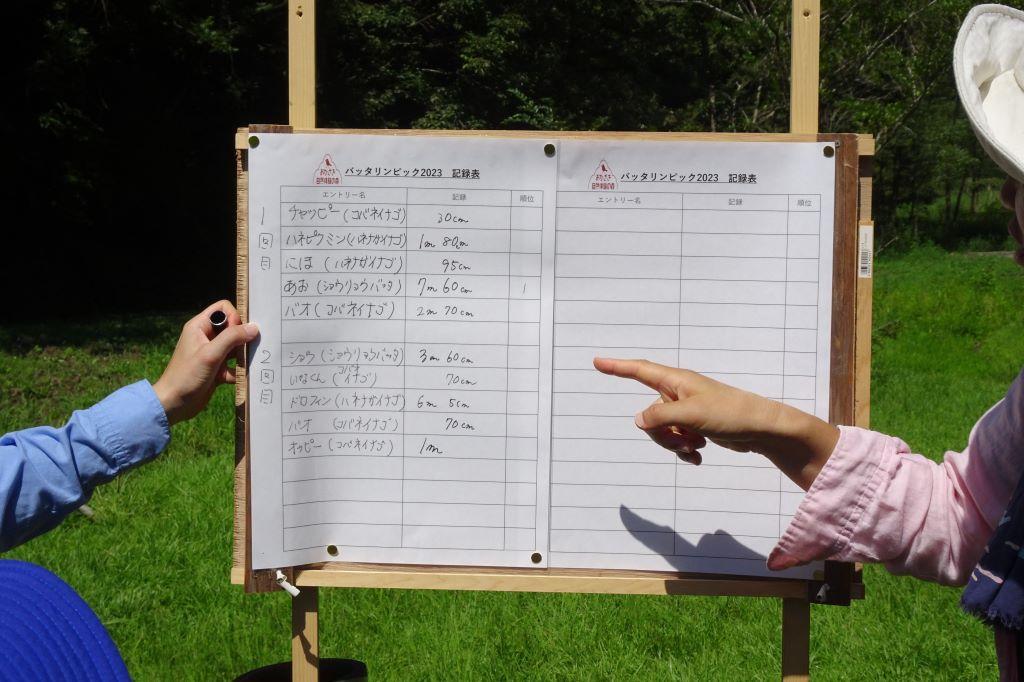 バッタリンピック2023 記録表
エントリー名 記録 順位
1回目
チャッピー(コバネイナゴ) 30cm
ハネピクミン(ハネナガイナゴ) 1m 80cm
にほ (ハネナガイナゴ) 95cm
あお(ショウリョウバッタ) 7m 60cm 1
バオ(コバネイナゴ) 2m 70cm
2回目
ショウ(ショウリョウバッタ) 3m 60cm
いなくん(コバネイナゴ) 70cm
ドロフィン(ハネナガイナゴ) 6m 5cm
バオ (コバネイナゴ) 70cm
オッピー(コバネイナゴ) 1m
バッタリンピック2023 記録表
エントリー名 記録 順位